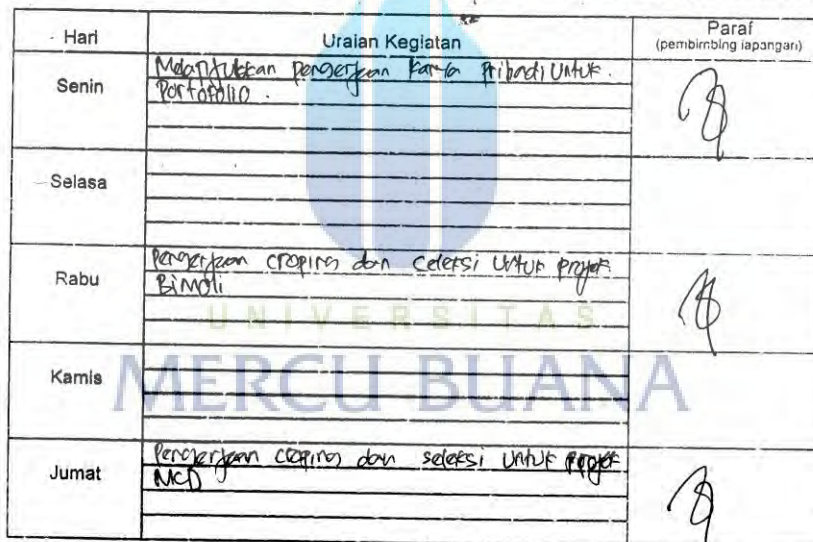 Hari
Uraian Kegiatan
Paraf
(pembimbing lapangan)
Senin
Melanjutkan pengerjaan karya Pribadi Untuk
Portofolio.
Selasa
Rabu
Pengerjaan croping dan celeksi Untuk projek
Bimoli
UNIVERSITAS
Kamis
MERCU BUANA
Jumat
Pengerjaan croping dan seleksi Untuk projek
MCD